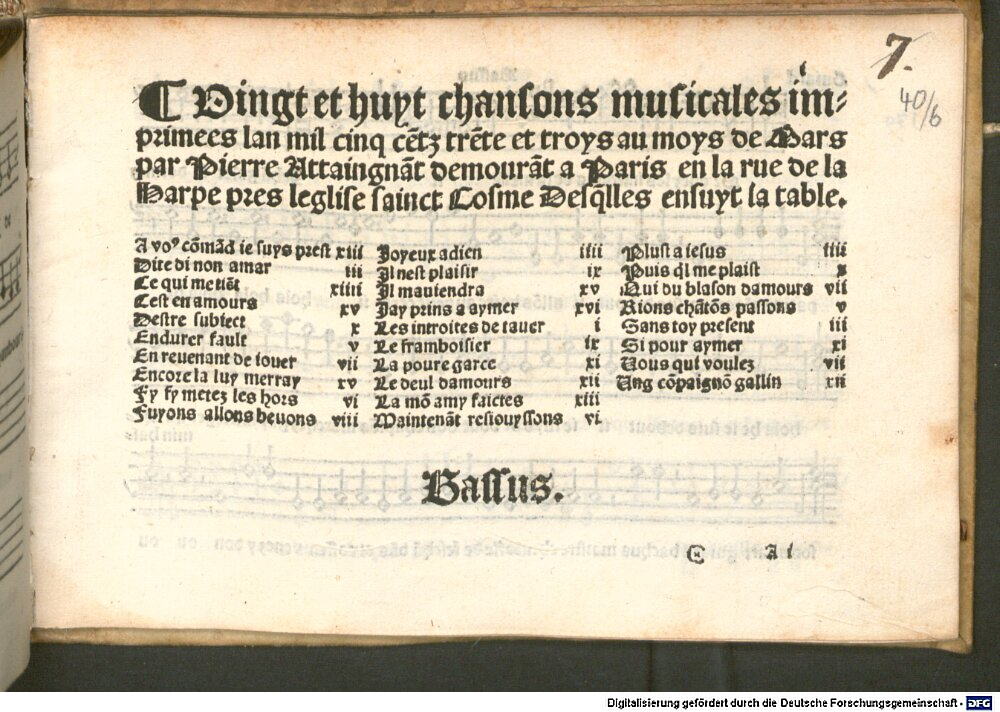 7.
40/6
¶ Vingt et huyt chansons musicales im-
primees lan mil cinq cētz trēte et troys au moys de Mars
par Pierre Attaingnāt demourāt a Paris en la rue de la
Harpe pres leglise sainct Cosme Desq̄lles ensuyt la table.
A voꝰ cōmād ie suys prest xiii
Dite di non amar iii
Ce qui me tiēt xiiii
Cest en amours xv
Destre subiect x
Endurer fault v
En reuenant de iouer vii
Encore la luy merray xv
Fy fy metez les hors vi
Fuyons allons beuons viii
Joyeux adieu iiii
Il nest plaisir ix
Il mauiendra xv
Jay prins a aymer xvi
Les introites de tauer i
Le framboisier ix
La poure garce xi
Le deul damours xii
La mō amy faictes xiii
Maintenāt resiouyssons vi
Plust a iesus iiii
Puis q̄l me plaist x
Qui du blason damours vii
Rions chātōs passons v
Sans toy present iii
Si pour aymer xi
Vous qui voulez vii
Ung cōpaignō gallin xii
Bassus.
C A i
Digitalisierung gefördert durch die Deutsche Forschungsgemeinschaft - DFG